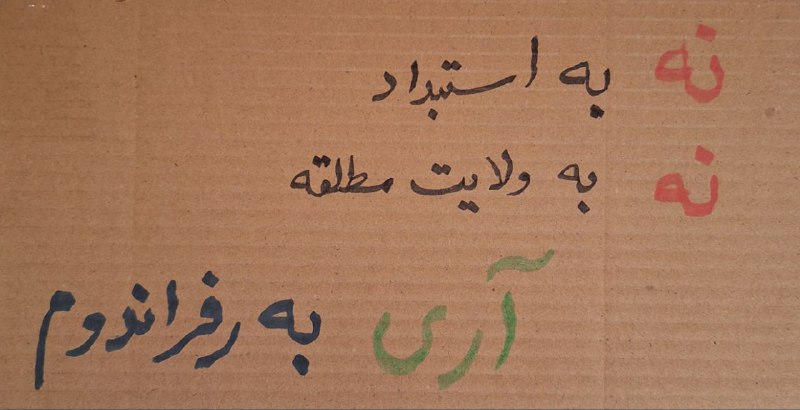 نه به استبداد
نه به ولایت مطلقه
آری به رفراندوم